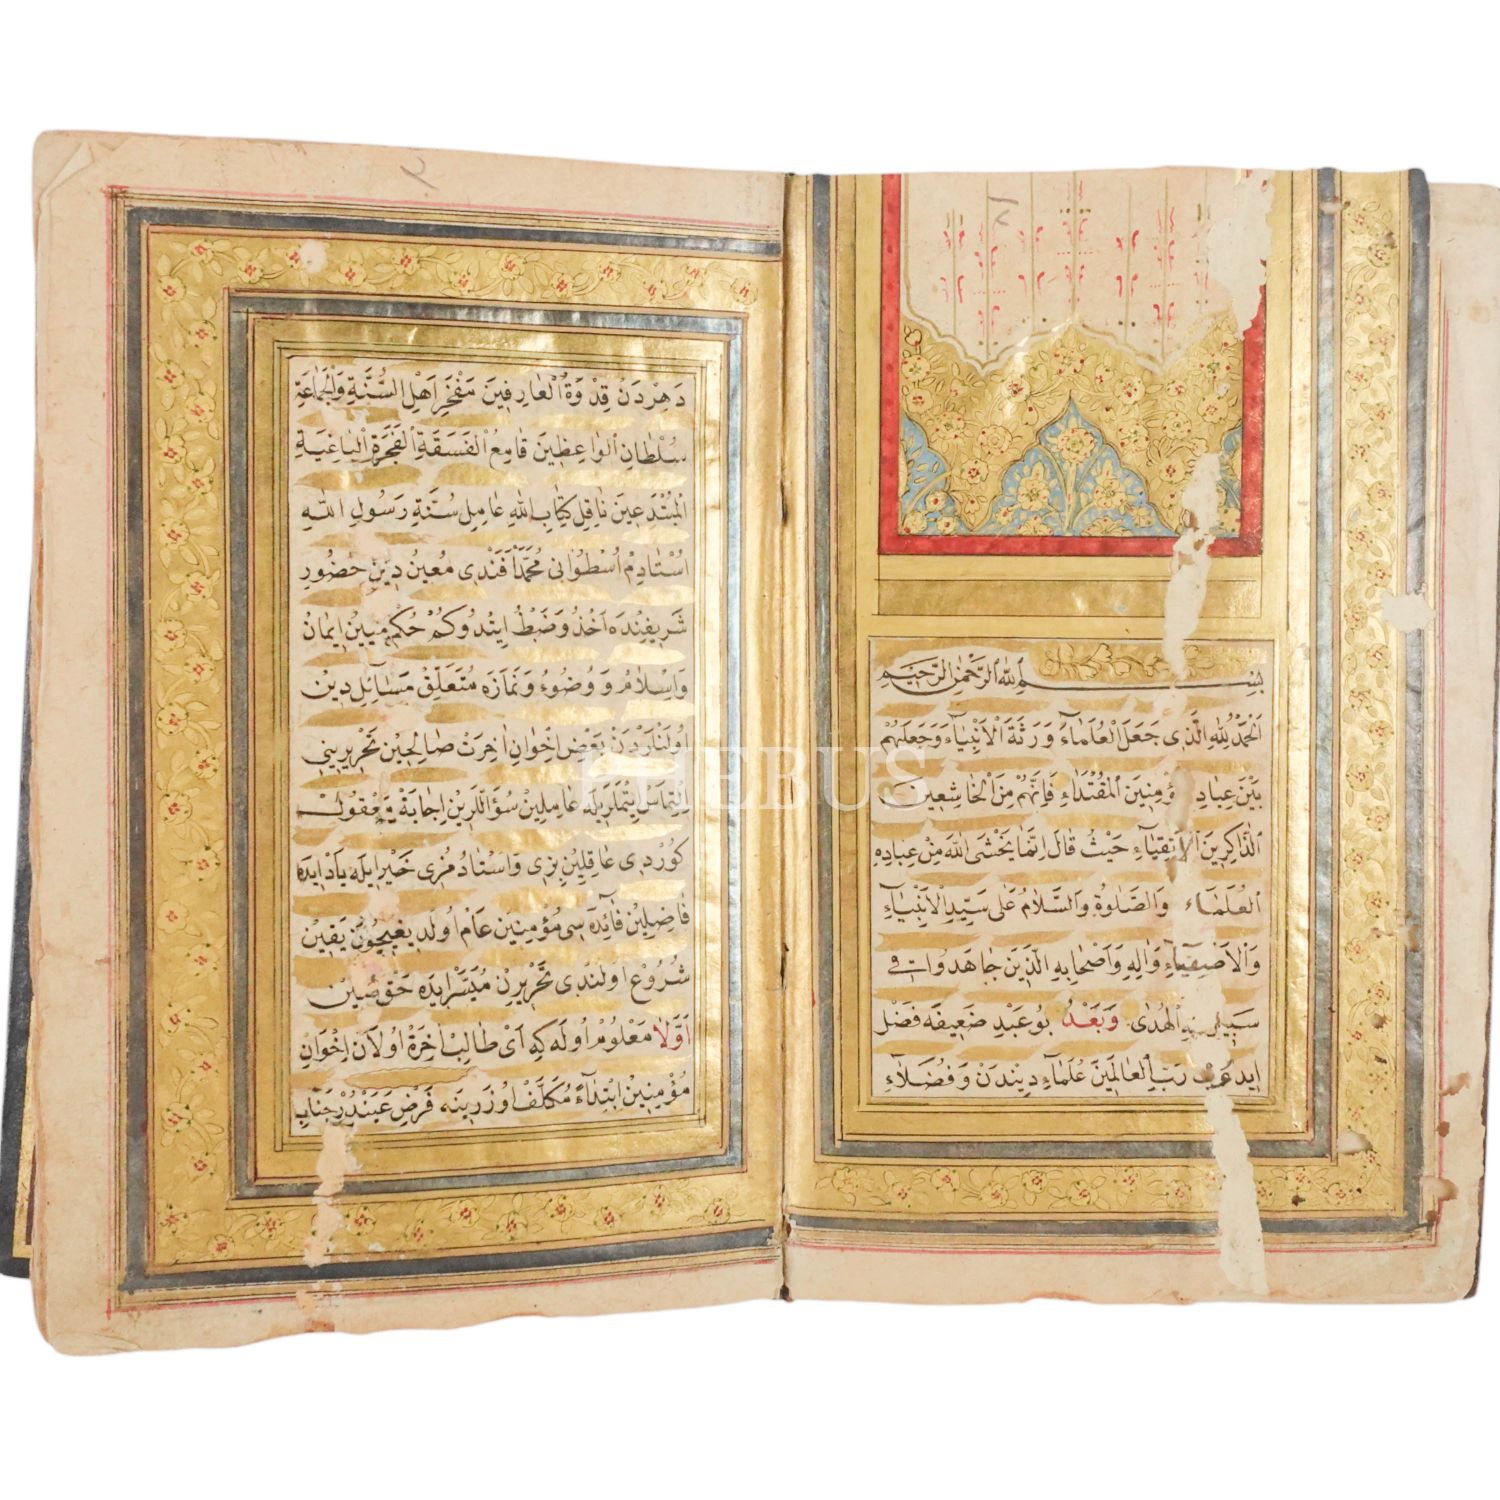 بِسْمِ اللهِ الرَّحْمٰنِ الرَّحِيمِ
اَلْحَمْدُ لِلّٰهِ الَّذِى جَعَلَ الْعُلَمَاءَ وَرَثَةَ الْاَنْبِيَاءِ وَجَعَلَهُمْ
بَيْنَ عِبَادِ ؤْمِنِينَ الْمُقْتَدَاءِ فَاِنَّهُمْ مِنَ الْخَاشِعِينَ
الذَّاكِرِينَ الْاَتْقِيَاءِ حَيْثُ قَالَ اِنَّمَا يَخْشَى اللهَ مِنْ عِبَادِهِ
الْعُلَمَاءُ وَالصَّلٰوةُ وَالسَّلَامُ عَلٰى سَيِّدِ الْاَنْبِيَاءِ
وَالْاَصْفِيَاءِ وَاٰلِهِ وَاَصْحَابِهِ الَّذِينَ جَاهَدُوا فِى
سَبِيلِ الْهُدٰى وَبَعْدُ بُو عَبْدِ ضَعِيفَه فَضْلِ
اِيدَه رَبُّ الْعَالَمِينَ عُلَمَاءِ دِينْدَنْ وَفُضَلَاءِ
دَهِرْدَنْ قِدْوَةُ الْعَارِفِينَ مَفْخَرِ اَهْلِ السُّنَّةِ وَالْجَمَاعَةِ
سُلْطَانِ الْوَاعِظِينَ قَامِعُ الْفَسَقَةِ الْفَجَرَةِ الْبَاغِيَةِ
الْمُبْتَدِعِينَ نَاقِلِ كِتَابِ اللهِ عَامِلِ سُنَّةِ رَسُولِ اللهِ
اُسْتَادِمْ اُسْطُوَانِى مُحَمَّدْ اَفَنْدِى مُعِينِ دِينْ حُضُورِ
شَرِيفِنْدَه اَخْذُ وَضَبْطُ اِيتْدُوكُمْ حُكْمِ مُبِينِ اِيمَانُ
وَاِسْلَامُ وَوُضُوءُ وَنَمَازَه مُتَعَلِّقْ مَسَائِلِ دِينْ
اُولَنْلَرْدَنْ بَعْضِ اِخْوَانِ اٰخِرَتْ صَالِحِينْ تَحْرِيرِينِى
اِلْتِمَاسْ اِيتْمَلَرِيلَه عَامِلِينْ سُؤَاللَّرِينْ اِجَابَةْ مَعْقُولْ
كُورْدِى عَاقِلِينْ بِزِى وَاُسْتَادُمُزِى خَيْرْ اِيلَه يَادْ اِيدَه
فَاضِلِينْ فَائِدَه سِى مُؤْمِنِينَ عَامْ اُولْدِيغِيچُونْ يَقِينْ
شُرُوعْ اُولُنْدِى تَحْرِيرِنْ مُيَسَّرْ اِيدَه حَقْ مُعِينْ
اَوَّلَا مَعْلُومْ اُولَه كِه اَىْ طَالِبِ اٰخِرَةْ اُولَانْ اِخْوَانِ
مُؤْمِنِينْ اِبْتِدَاءً مُكَلَّفْ اُوزَرِينَه فَرْضِ عَيْنْدُرْ جَنَابِ